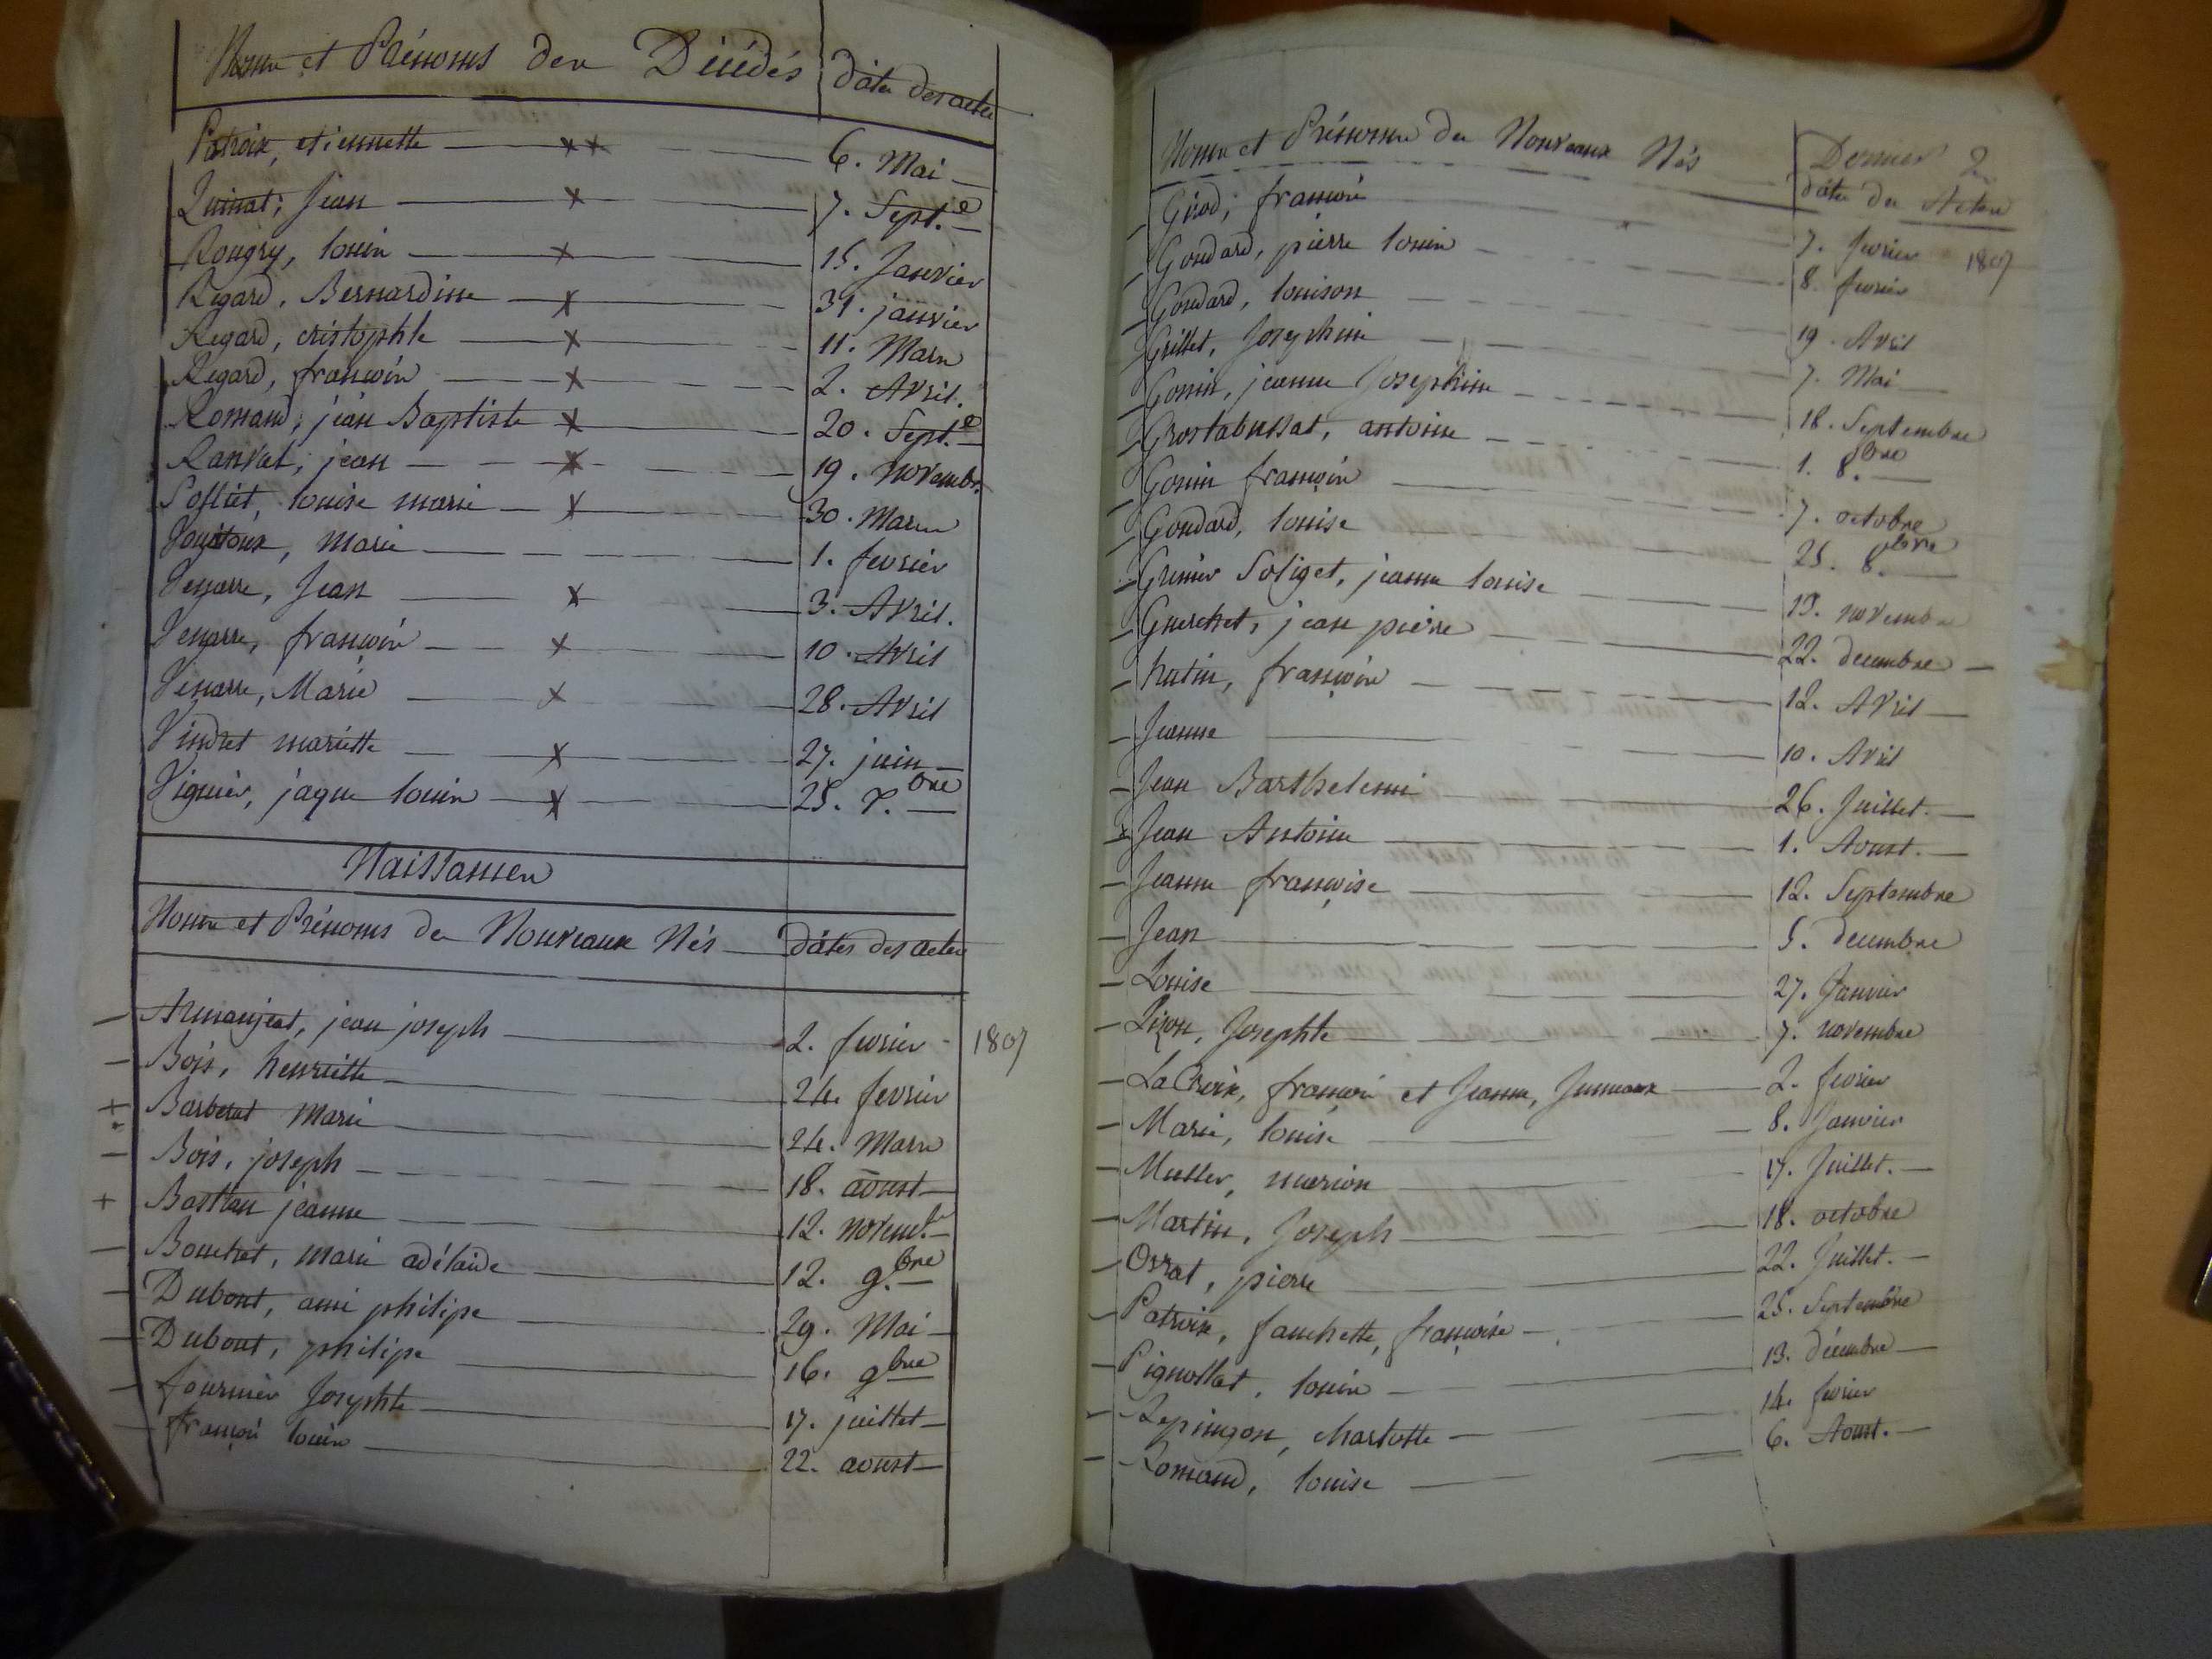 Noms et Prénoms des Décédés dâtes des actes
Patroix, etiennette 6. Mai
Quinat, Jean 7. Sept.e
Rougzy, louis 15. Janvier
Regard, Bernardine 31. janvier
Regard, cristophle 11. Mars
Regard, françois 2. Avril.
Romand, jean Baptiste 20. Sept.e
Ranvat, jean 19. Novembr.
Soffiet, louise marie 30. Mars
marie 1. fevrier
Venarre, Jean 3. Avril.
Venarre, françois 10. Avril
Venarre, Marie 28. Avril
Vindret mariette 27. juin
Viguier, jaque louis 25. 7.bre
Naissances
Noms et Prénoms des Nouveaux Nés dâtes des actes
Armanjeat, jean joseph 2. fevrier 1807
Bois, henriette 24. fevrier
Barberat Marie 24. Mars
Bois, joseph 18. aoust
Bastian jeanne 12. novemb.
Bouchet, marie adélaïde 12. 9.bre
Dubout, ami philipe 29. Mai
Dubout, philipe 16. 9bre
fournier Josephte 17. juillet
françois louis 22. aoust
Noms et Prénoms des Nouveaux Nés Dernier 2
dâtes des Actes
Girod, françois 7. fevrier 1807
Goudard, pierre louis 8. fevrier
Goudard, louison 19. Avril
Grillet, Josephine 7. Mai
Gonin, jeanne Josephine 18. Septembre
Grostabussat, antoine 1. 8.bre
Gonin françois 7. octobre
Goudard, louise 25. 8.bre
Grenier Soliget, jeanne louise 15. novembre
Guerchet, jean pierre 22. decembre
hutin, françois 12. Avril
Jeanne 10. Avril
Jean Barthelemi 26. Juillet.
Jean Antoine 1. Aoust.
Jeanne françoise 12. Septembre
Jean 5. decembre
Louise 27. Janvier
Lizon, Josephte 7. novembre
La Croix, françois et Jeanne, Jumeaux 2. fevrier
Marie, louise 8. Janvier
Muller, marion 17. Juillet.
Martin, Joseph 18. octobre
Orsat, pierre 22. Juillet.
Patroix, fanchette, françoise 25. Septembre
Pignollet, louis 13. décembre
Repingon, charlotte 14. fevrier
Romand, louise 6. Aoust.